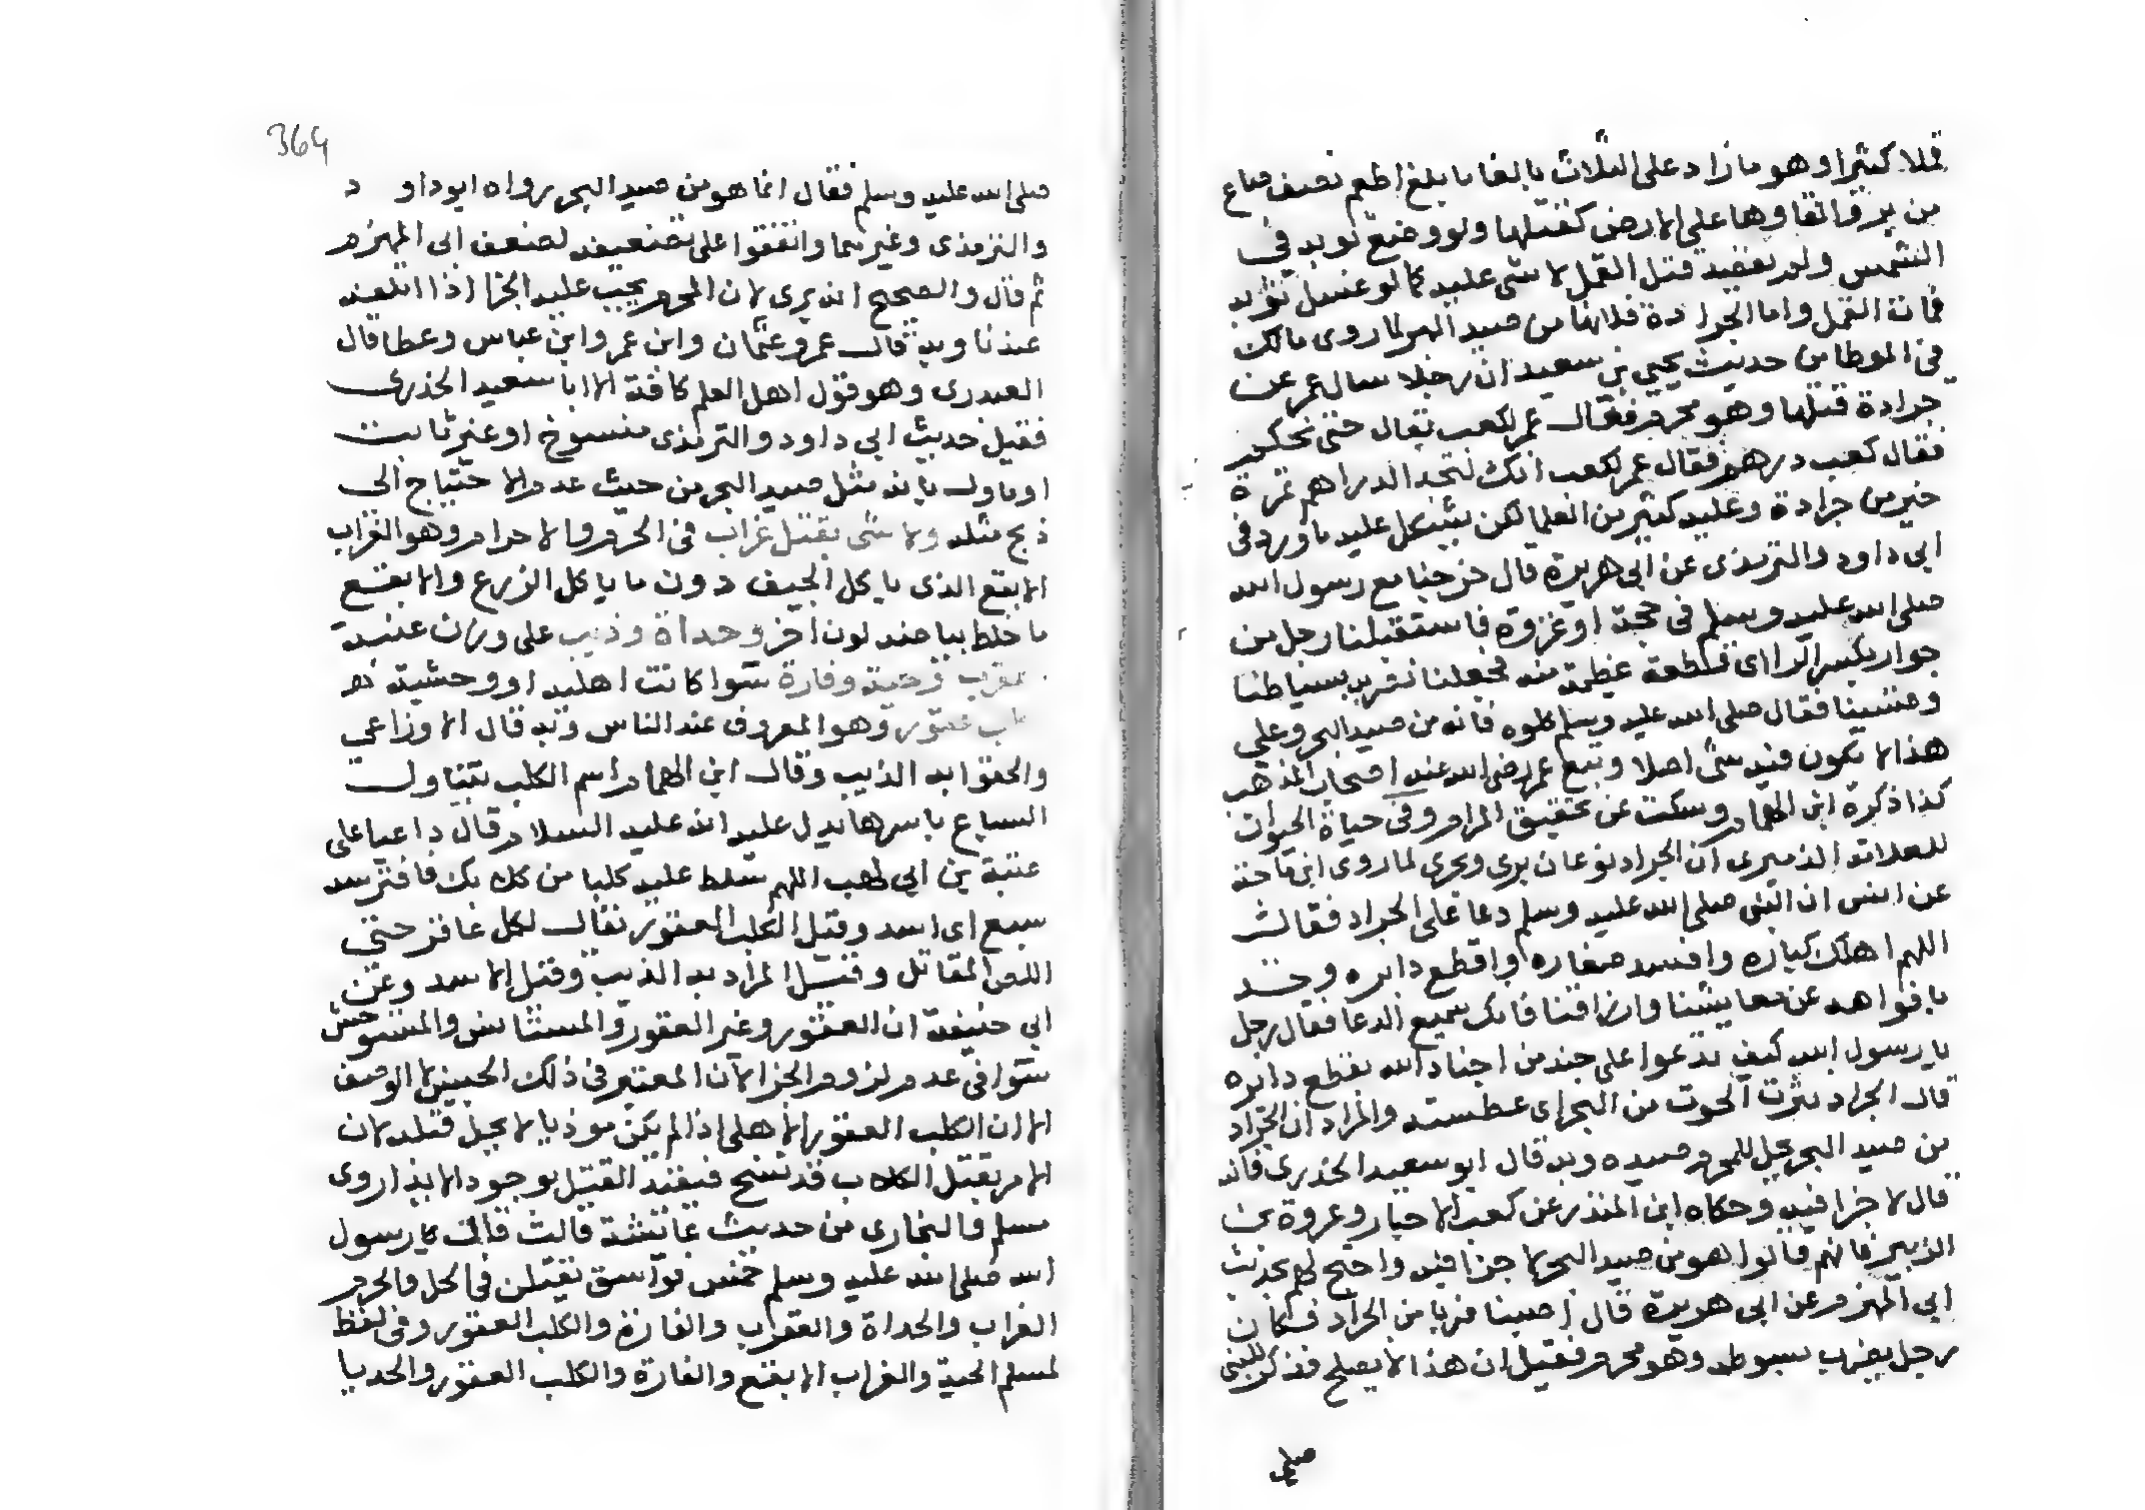 قملا كثيرا وهو ما زاد على الثلاث بالغا ما بلغ اطعم نصف صاع
من بر والقاوها على الارض كقتلها ولو وضع ثوبه في
الشمس ولم يقصد قتل القمل لا شي عليه كما لو غسل ثوبه
فمات القمل واما الجرادة فلانها من صيد البر لما روى مالك
في الموطا من حديث يحيى بن سعيد ان رجلا سال عمر عن
جرادة قتلها وهو محرم فقال عمر لكعب تعال حتى نحكم
فقال كعب درهم فقال عمر لكعب انك لتجد الدراهم تمرة
خير من جرادة وعليه كثير من العلما لكن يشكل عليه ما ورد في
ابي داود والترمذى عن ابي هريرة قال خرجنا مع رسول الله
صلى الله عليه وسلم في حجة او غزوة فاستقبلنا رجل من
جراد بكسر الرا اى قطعة عظيمة منه فجعلنا نضربه بسياطنا
وقسينا فقال صلى الله عليه وسلم كلوه فانه من صيد البحر وعلى
هذا لا يكون فيه شي اصلا وتبع عمر رضي الله عنه اصحاب المذهب
كذا ذكره ابن الهمام وسكت عن تحقيق المرام وفي حياة الحيوان
للعلامة الدميرى ان الجراد نوعان برى وبحرى لما روى ابن ماجة
عن انس ان النبي صلى الله عليه وسلم دعا على الجراد فقال
اللهم اهلك كباره وافسد صغاره واقطع دابره وخذ
بافواهه عن معايشنا وارزاقنا فانك سميع الدعا فقال رجل
يا رسول الله كيف تدعوا على جند من اجناد الله بقطع دابره
قال الجراد نثرت الحوت من البحر اى عطسته والمراد ان الجراد
من صيد البحر يحل للمحرم صيده وبه قال ابو سعيد الخدرى فانه
قال لا جزا فيه وحكاه ابن المنذر عن كعب الاحبار وعروة بن
الزبير فانهم قالوا هو من صيد البحر لا جزا فيه واحتج لهم بحديث
ابي المهزم عن ابي هريرة قال اصبنا ضربا من الجراد فكان
رجل يضرب بسوطه وهو محرم فقيل ان هذا لا يصلح فذكر للنبي
صلى
364
صلى الله عليه وسلم فقال انما هو من صيد البحر رواه ابو داو د
والترمذى وغيرهما واتفقوا على تضعيفه لضعف ابي المهزم
ثم قال والصحيح انه برى لان المحرم يجب عليه الجزا اذا اتلفه
عندنا وبه قال عمر وعثمان وابن عمر وابن عباس وعطا قال
العبدرى وهو قول اهل العلم كافة الا ابا سعيد الخذرى
فقيل حديث ابي داود والترمذى منسوخ او غير ثابت
او ماول بانه مثل صيد البحر من حيث عدم الاحتياج الى
ذبح مثله ولا شى بقتل غراب في الحرم والاحرام وهو الغراب
الابقع الذى ياكل الجيف دون ما ياكل الزرع والابقع
ما خلط بياضه لون اخر وحداة وذيب على وزن عنبة
عقرب وحية وفارة سوا كانت اهلية او وحشية
عقور وهو المعروف عند الناس وبه قال الاوزاعي
والحقوا به الذيب وقال ابن الهمام اسم الكلب يتناول
السباع باسرها يدل عليه انه عليه السلام قال داعيا على
عتبة بن ابي لهب اللهم سلط عليه كلبا من كلابك فافترسه
سبع اى اسد وقيل الكلب العقور يقال لكل عاقر حتى
اللص المقاتل وقيل المراد به الذيب وقيل الاسد وعن
ابي حنيفة ان العقور وغير العقور والمستانس والمتوحش
سوا في عدم لزوم الجزا لان المعتبر في ذلك الجنس لا الوصف
الا ان الكلب العقور الاهلي اذا لم يكن موذيا لا يحل قتله لان
الامر بقتل الكلاب قد نسخ فيقيد القتل بوجود الايذا روى
مسلم والبخارى من حديث عائشة قالت قال يا رسول
الله صلى الله عليه وسلم خمس فواسق يقتلن في الحل والحرم
الغراب والحداة والعقرب والفارة والكلب العقور وفي لفظ
لمسلم الحية والغراب الابقع والفارة والكلب العقور والحديا